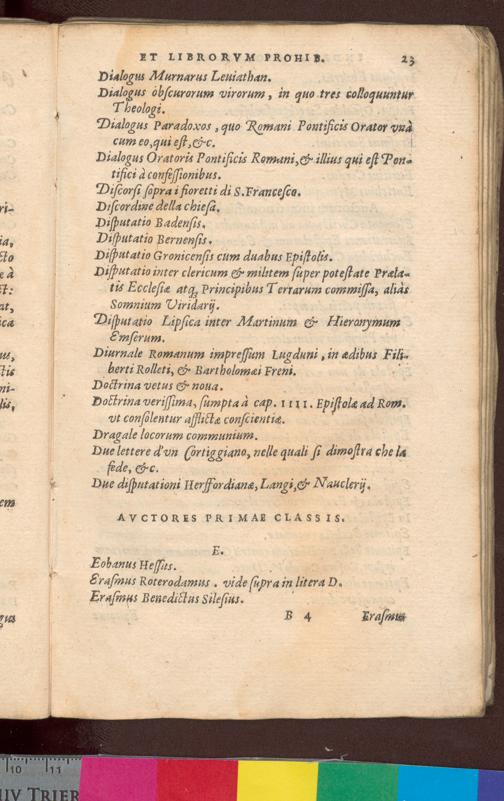 ET LIBRORVM PROHIB. 23
Dialogus Murnarus Leuiathan.
Dialogus obscurorum virorum, in quo tres colloquuntur
Theologi.
Dialogus Paradoxos, quo Romani Pontificis Orator vnà
cum eo, qui est, &c.
Dialogus Oratoris Pontificis Romani, & illius qui est Pon-
tifici à confessionibus.
Discorsi sopra i fioretti di S. Francesco.
Discordine della chiesa.
Disputatio Badensis.
Disputatio Bernensis.
Disputatio Gronicensis cum duabus Epistolis.
Disputatio inter clericum & militem super potestate Præla-
tis Ecclesiæ atq; Principibus Terrarum commissa, aliàs
Somnium Viridarij.
Disputatio Lipsica inter Martinum & Hieronymum
Emserum.
Diurnale Romanum impressum Lugduni, in ædibus Fili-
berti Rolleti, & Bartholomæi Freni.
Doctrina vetus & noua.
Doctrina verissima, sumpta à cap. IIII. Epistolæ ad Rom.
vt consolentur afflictæ conscientiæ.
Dragale locorum communium.
Due lettere d'vn Cortiggiano, nelle quali si dimostra che la
fede, &c.
Due disputationi Herffordianæ, Langi, & Nauclerij.
AVCTORES PRIMAE CLASSIS.
E.
Eobanus Hessus.
Erasmus Roterodamus. vide supra in litera D.
Erasmus Benedictus Silesius.
B 4 Erasmus
10 11
IV TRIER